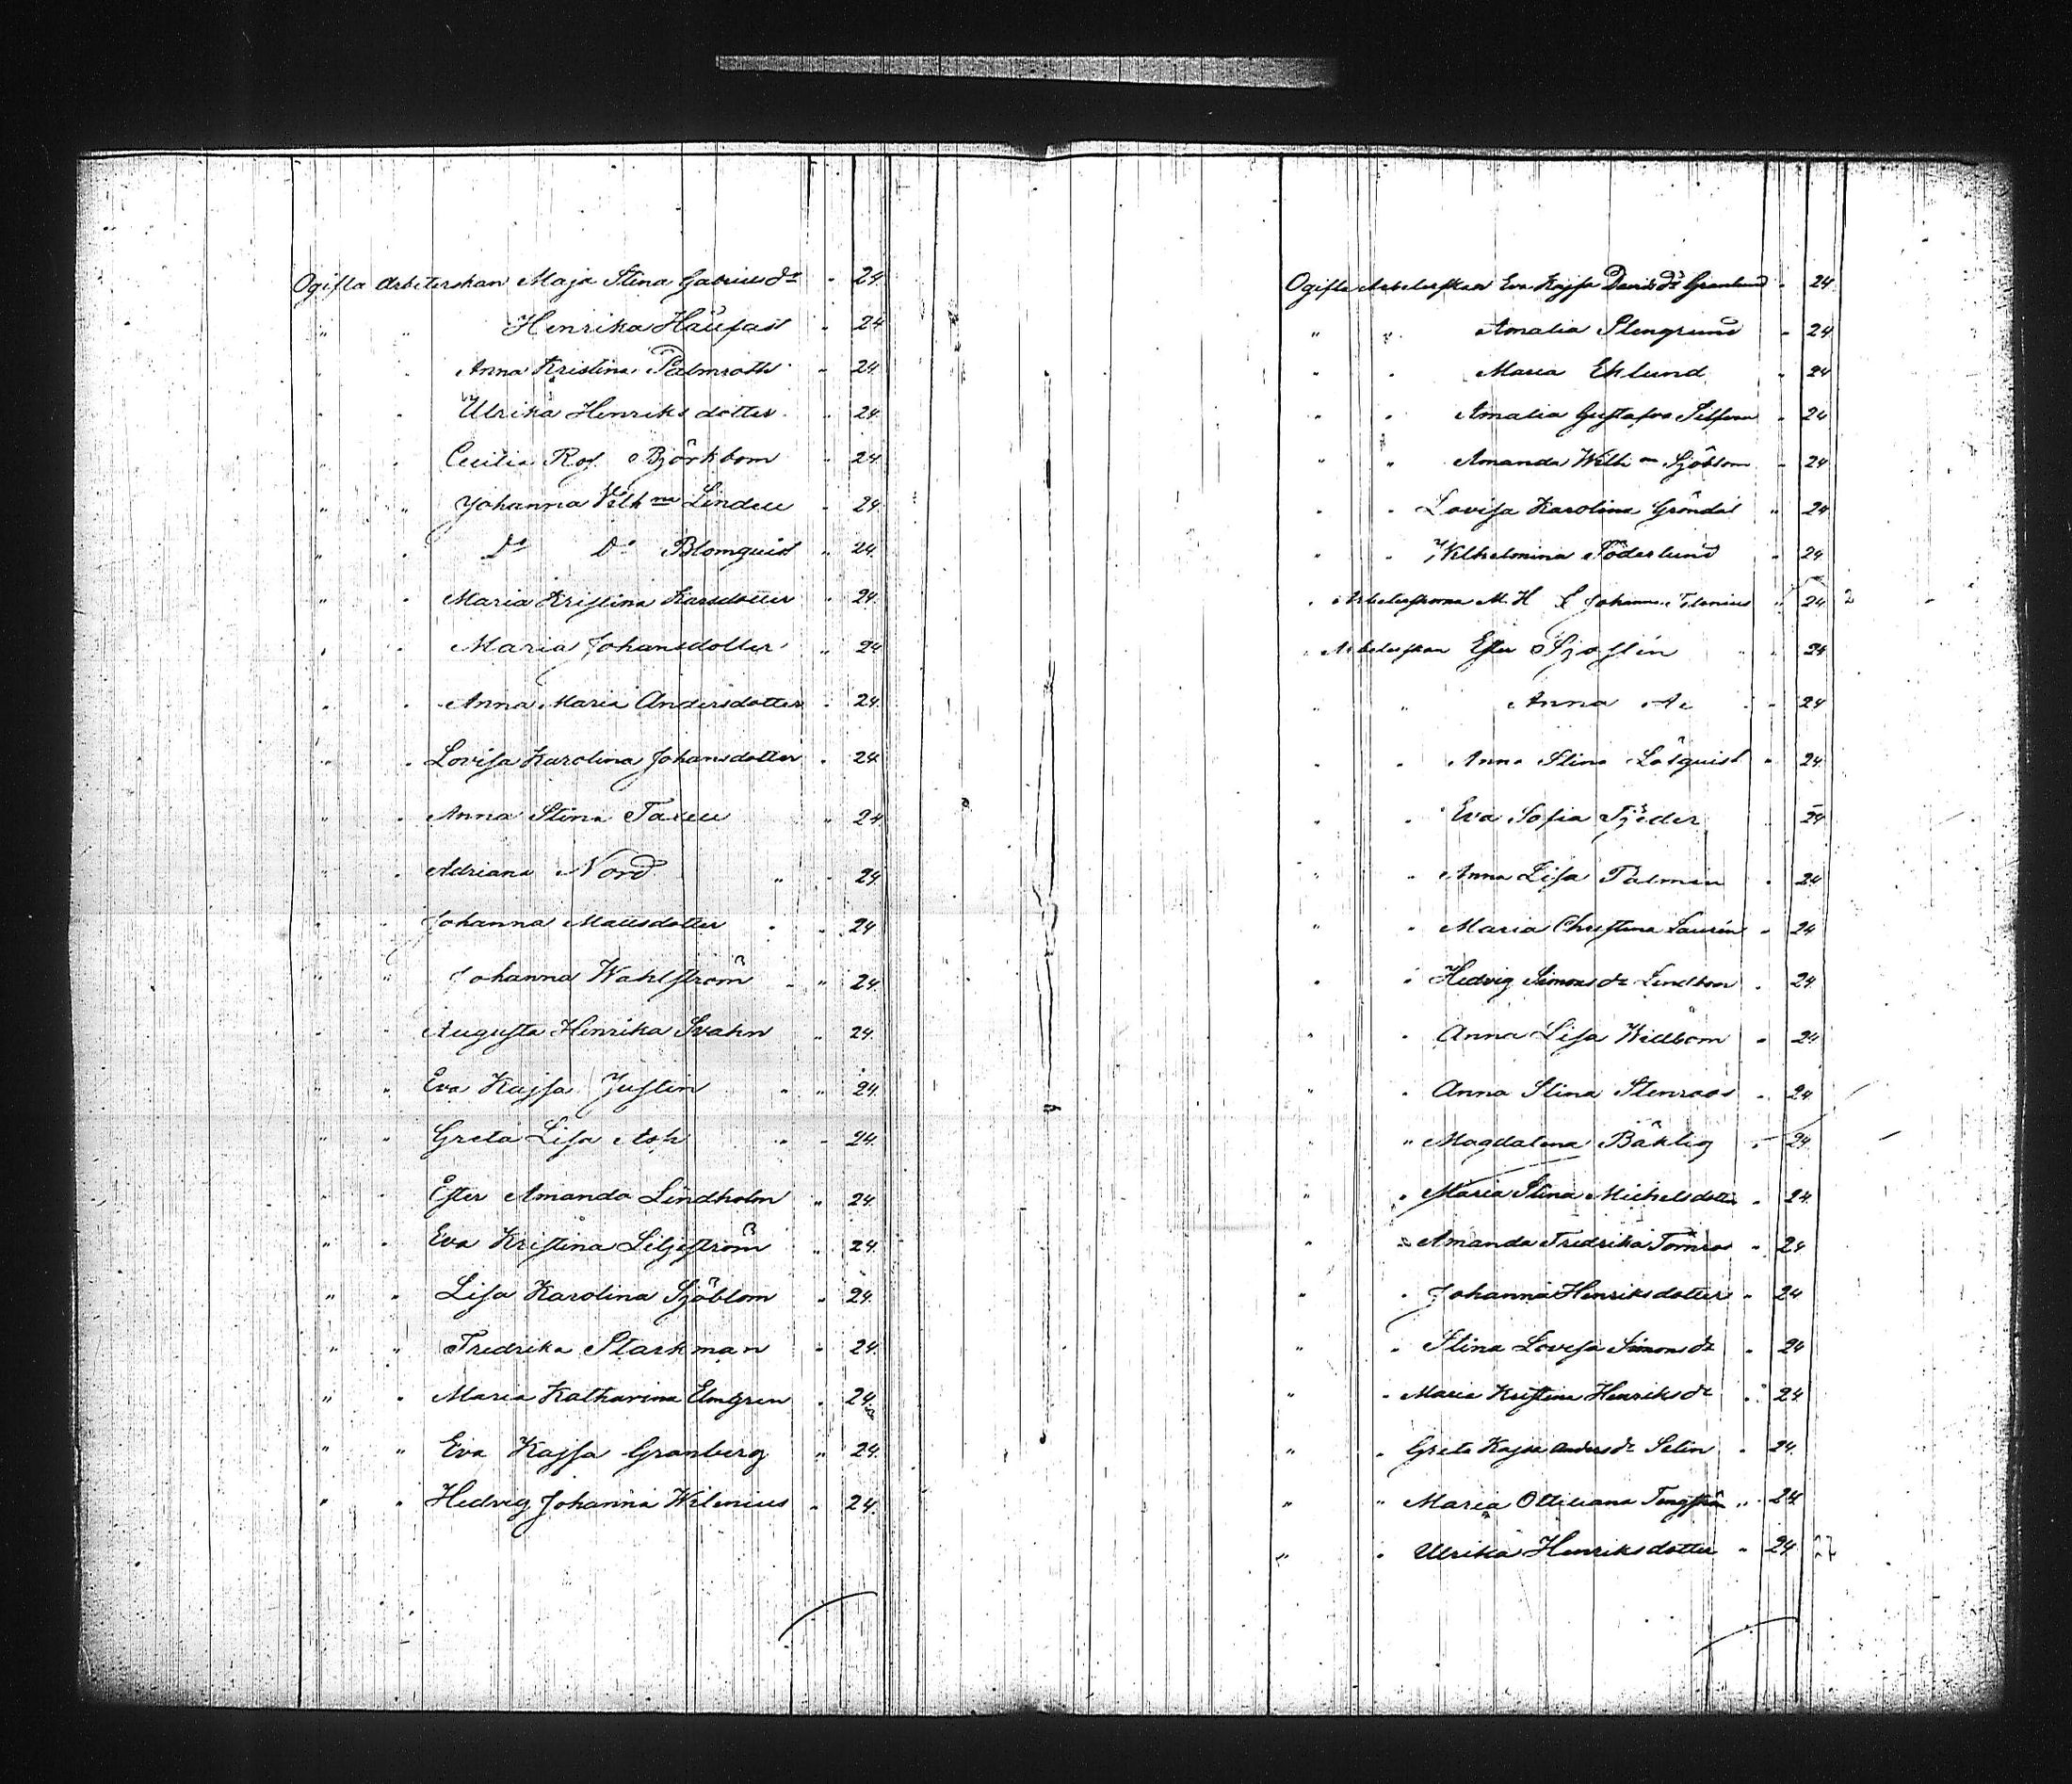 Ogifta Arbeterskan Maja Stina Gabriels dr " 24
" " Henrika " 24
" " Anna Kristina Palmroth " 24
" " Ulrika Henriks dotter " 24
" " Cecilia Ros. Björkbom " 24
" " Johanna Vilh na Lindell " 24
" " Do Do Blomquist " 24
" " Maria Kristina Karlsdotter " 24
" " Maria Johansdotter " 24
" " Anna Maria Andersdotter " 24
" " Lovisa Karolina Johansdotter " 24
" " Anna Stina Taxell " 24
" " Adriana Nord " " 24
" " Johanna Mattsdotter " " 24
" " Johanna Wahlström " " 24
" " Augusta Henrika Svahn " 24
" " Eva Kajsa Justin " " 24
" " Greta Lisa Ask " " 24
" " Ester Amanda Lindholm " 24
" " Eva Kristina Liljeström " 24
" " Lisa Karolina Sjöblom " 24
" " Fredrika Starkman " 24
" " Maria Katharina Elmgren " 24
" " Eva Kajsa Granberg " 24
" " Hedvig Johanna Wilenius " 24
Ogifta Arbeterskan Eva Kajsa Davids dr Granlund " 24
" " Amalia Stengrund " 24
" " Maria Eklund " 24
" " Amalia Gustafva " 24
" " Amanda Wilh na Sjöblom " 24
" " Lovisa Karolina Gröndal " 24
" " Wilhelmina Söderlund " 24
" Arbeterskorna M. H. & Johanna " 24 2
" Arbeterskan Ester Sjöstén " " 24
" " Anna " " 24
" " Anna Stina Löfquist " 24
" " Eva Sofia Tjeder " 24
" " Anna Lisa Palmén " 24
" " Maria Christina Laurén " 24
" " Hedvig Simons dr Lindbom " 24
" " Anna Lisa Killbom " 24
" " Anna Stina Stenroos " 24
" " Magdalena Bäklig " 24
" " Maria Stina Michelsdotter " 24
" " Amanda Fredrika Törnroos " 24
" " Johanna Henriksdotter " 24
" " Stina Lovisa Simons dr " 24
" " Maria Kristina Henriks dr " 24
" " Greta Kajsa Anders dr Selin " 24
" " Maria Ottiliana Tengström " 24
" " Ulrika Henriksdotter " 24